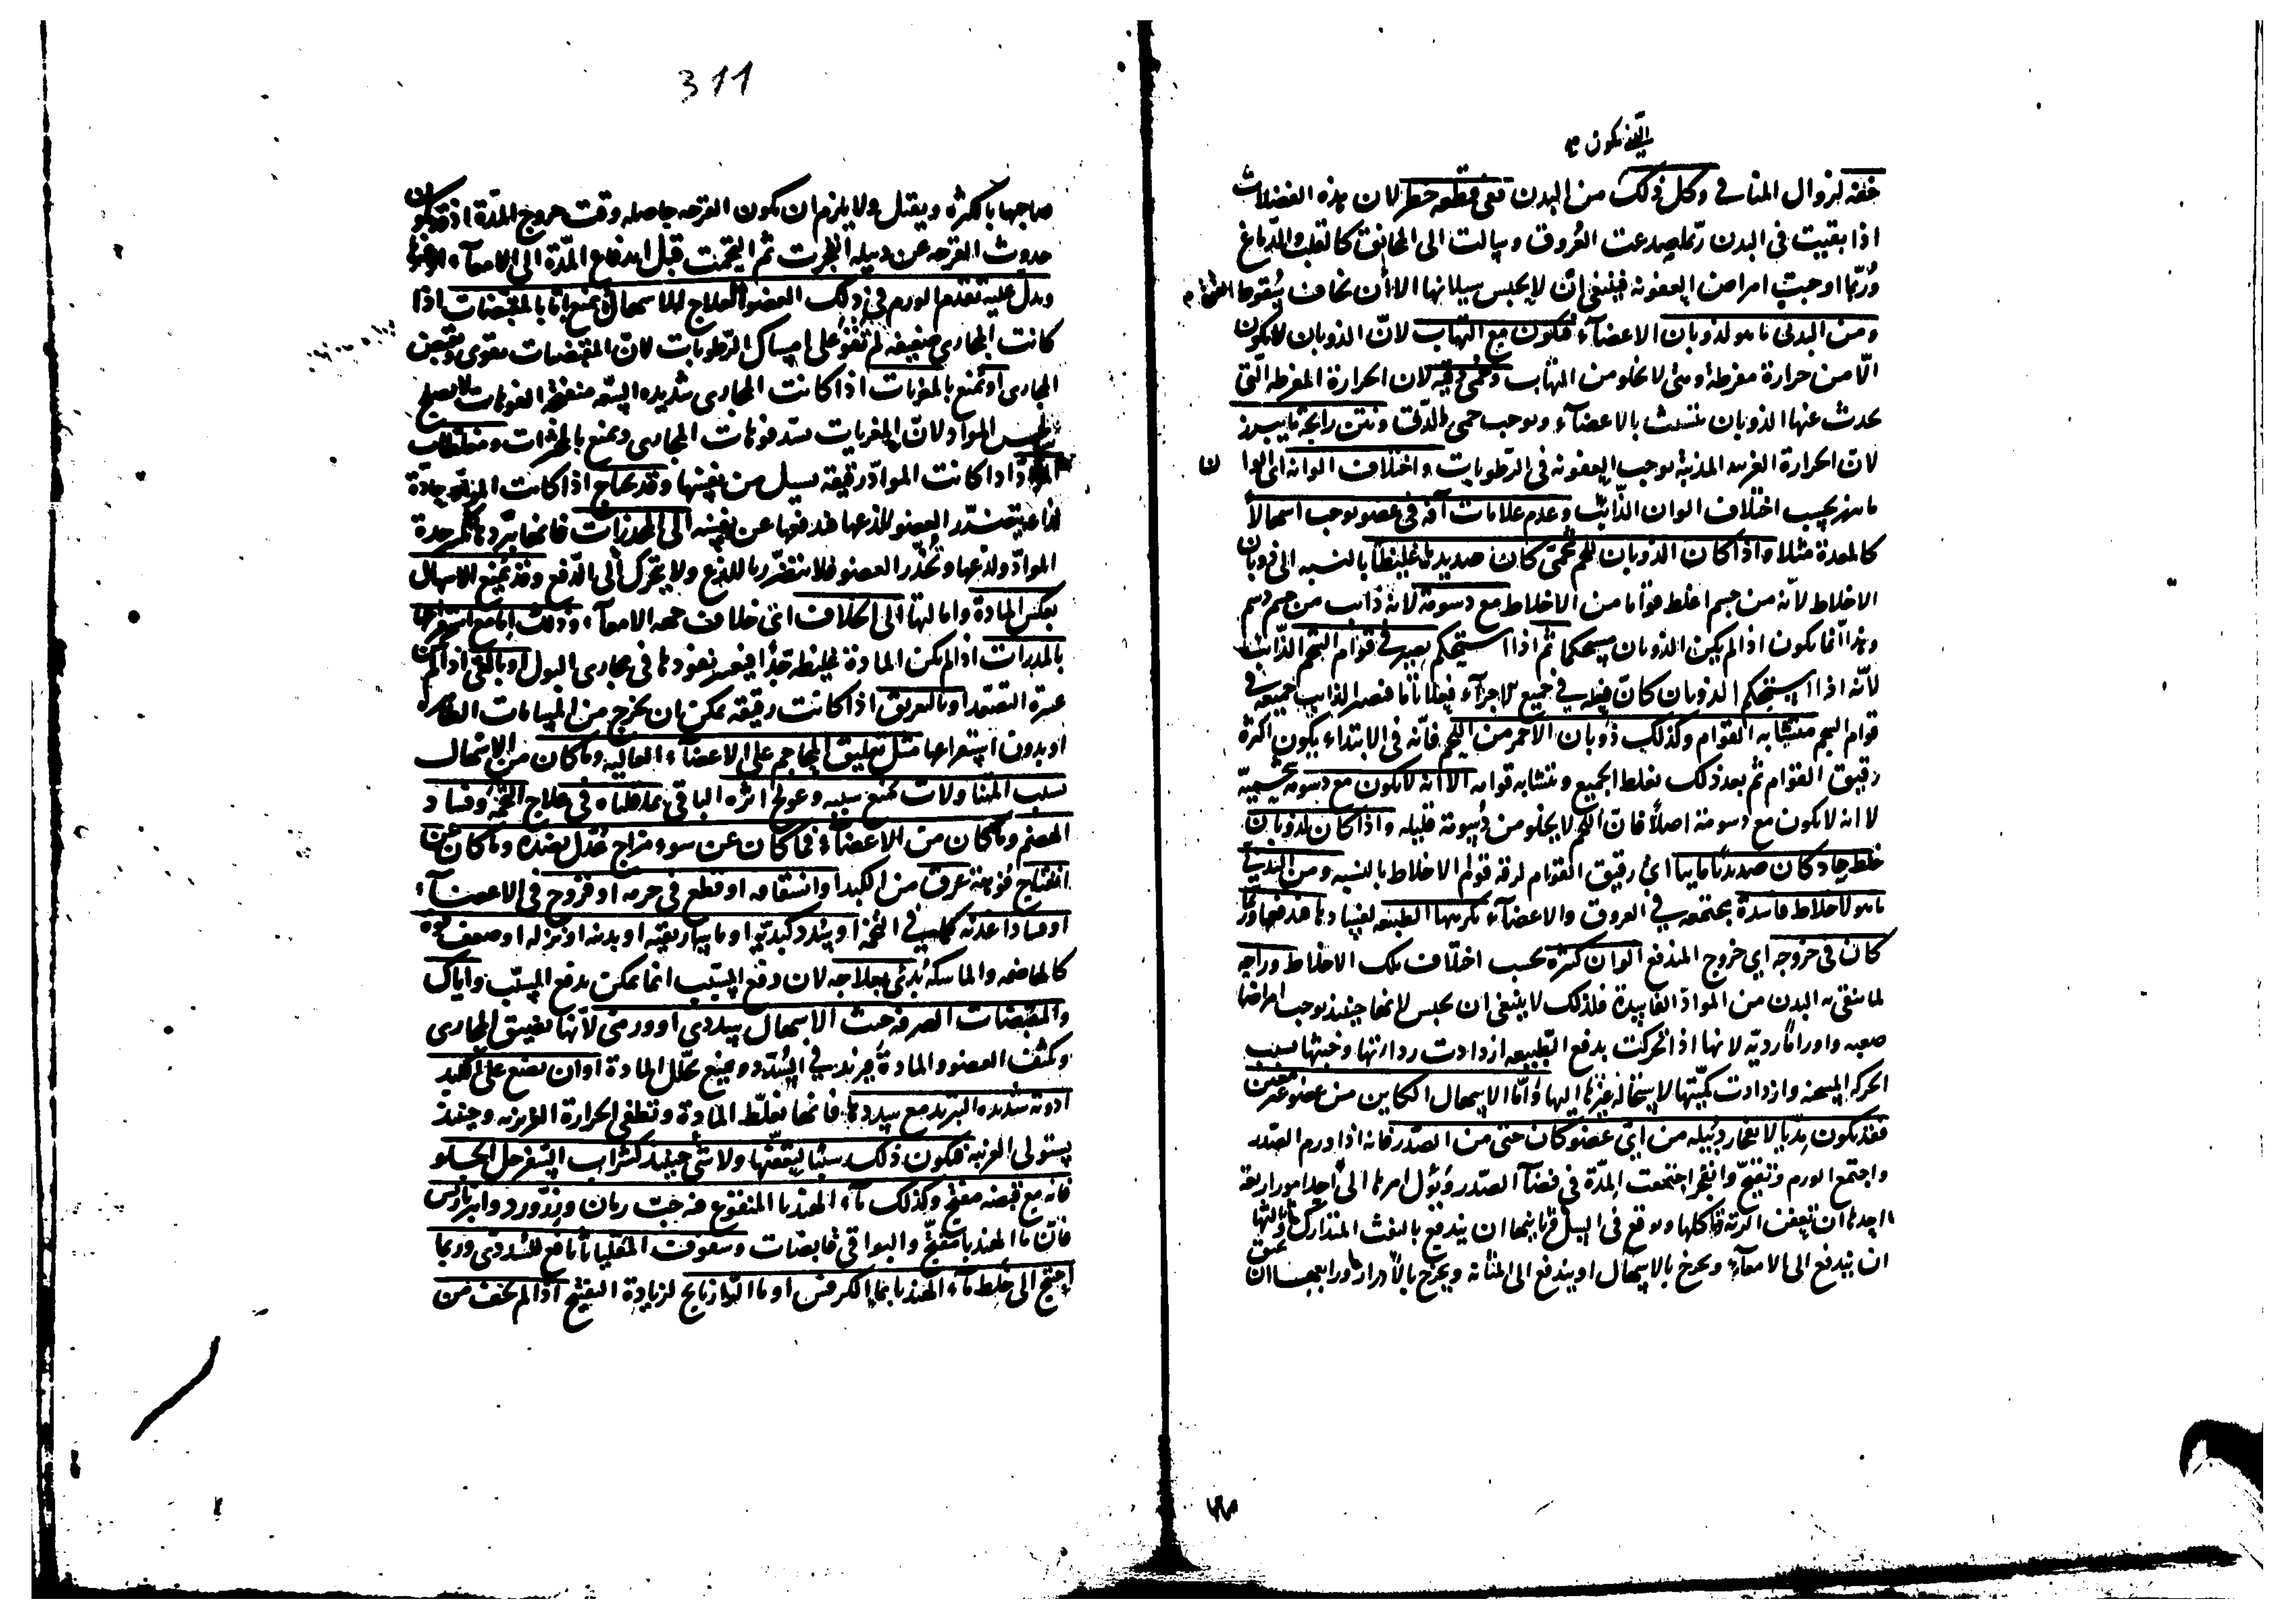 خفة لزوال المنافي وكل ذلك من البدن ففي قطعه خطر لان هذه الفضلات
اذا بقيت في البدن ربما صدعت العروق وسالت الى المخانق كالقلب والدماغ
وربما اوجبت امراض العفونة فينبغي ان لا يحبس سيلانها الا ان يخاف سقوط القوة
ومن البدني ما هو لذوبان الاعضاء فيكون مع التهاب لان الذوبان لا يكون
الا من حرارة مفرطة وهي لا تخلو من التهاب وحمى دقية لان الحرارة المفرطة التي
يحدث عنها الذوبان تتشبث بالاعضاء وتوجب حمى الدق ونتن رايحة ما يبرز
لان الحرارة الغريبة المذيبة توجب العفونة في الرطوبات واختلاف الوانه اي الوان
ما يبرز بحسب اختلاف الوان الذائب وعدم علامات آفة في عضو يوجب اسهالا
كالمعدة مثلا واذا كان الذوبان للحم شحمي كان صديديا غليظا بالنسبة الى ذوبان
الاخلاط لانه من جسم اغلظ قواما من الاخلاط مع دسومة لانه ذائب من جسم دسم
وهذا انما يكون اذا لم يكن الذوبان مستحكما ثم اذا استحكم يصير في قوام الشحم الذائب
لانه اذا استحكم الذوبان كان فعله في جميع الاجزاء فعلا تاما فيصير الذايب جميعه في
قوام الشحم متشابه القوام وكذلك ذوبان الاحمر من اللحم فانه في الابتداء يكون اكثره
رقيق القوام ثم بعد ذلك يغلظ الجميع ويتشابه قوامه الا انه لا يكون مع دسومة شحمية
لا انه لا يكون مع دسومة اصلا فان اللحم لا يخلو من دسومة قليلة واذا كان لذوبان
خلط حاد كان صديديا مائيا اي رقيق القوام لرقة قوام الاخلاط بالنسبة ومن البدني
ما هو لاخلاط فاسدة مجتمعة في العروق والاعضاء تكرهها الطبيعة لفسادها فتدفعها وربما
كان في خروجه اي خروج المندفع الوان كثيرة بحسب اختلاف تلك الاخلاط وراحة
لما ينقى به البدن من المواد الفاسدة فلذلك لا ينبغي ان يحبس لانها حينئذ يوجب امراضا
صعبة واوراما ردية لانها اذا تحركت بدفع الطبيعة ازدادت رداءتها وخبثها بسبب
الحركة المسخنة وازدادت كميتها لاستحالة غيرها اليها واما الاسهال الكاين من عضو غير معين
فقد يكون مديا لانفجار دبيلة من اي عضو كان حتى من الصدر فانه اذا ورم الصدر
واجتمع الورم وتقيح وانفجر اجتمعت المدة في فضاء الصدر ويؤول امرها الى احد امور اربعة
احدها ان تعفن الرية وتأكلها ويوقع في السل وثانيها ان يندفع بالنفث المتدارك وثالثها
ان يندفع الى الامعاء ويخرج بالاسهال او يندفع الى المثانة ويخرج بالادرار ورابعها ان
311
صاحبها بالكثرة ويقتل ولا يلزم ان يكون القرحة حاصلة وقت خروج المدة اذ قد يكون
حدوث القرحة عن دبيلة انفجرت ثم التحمت قبل اندفاع المدة الى الامعاء
ويدل عليه تقدم الورم في ذلك العضو العلاج الاسهال يمنع اما بالمقبضات اذا
كانت المجاري ضعيفة لم تقو على امساك الرطوبات لان المقبضات تقوي وتقبض
المجاري او يمنع بالمغريات اذا كانت المجاري شديدة السعة منفتحة الفوهات
المواد لان المغريات تسد فوهات المجاري ويمنع بالمخثرات ومغلظات
المواد اذا كانت المواد رقيقة تسيل من نفسها وقد يحتاج اذا كانت المواد حادة
لذاعة يتضرر العضو للذعها فيدفعها عن نفسه الى المخدرات فانها تبردها تكسر حدة
المواد ولذعها وتخدر العضو فلا يتضرر باللذع ولا يتحرك الى الدفع وقد يمنع الاسهال
بعكس المادة وامالتها الى الخلاف اي خلاف جهة الامعاء وذلك اما مع استفراغها
بالمدرات اذا لم يكن المادة غليظة جدا فيعسر نفوذها في مجاري البول او بالقي اذا لم يكن
عسرة التصعد او بالتعريق اذا كانت رقيقة يمكن ان يخرج من المسامات
او بدون استفراغها مثل تعليق المحاجم على الاعضاء العالية وما كان من الاسهال
بسبب المتناولات يمنع سببه وعولج اثره الباقي بما قلناه في علاج التخمة وفساد
الهضم وما كان من الاعضاء فما كان عن سوء مزاج عدل بضده وما كان عن
انفتاح فوهة عرق من الكبد او انشقاقه او قطع في جرمه او قروح في الاعضاء
او فساد اغذية في التخم او سدد كبدية او ماساريقية او بدنية او نزلة او ضعف قوة
كالهاضمة والماسكة بدئ بعلاجه لان دفع المسبب انما يمكن بدفع السبب واياك
والمقبضات الصرفة حيث الاسهال سددي او ورمي لانها تضيق المجاري
وتكثف العضو والمادة فيزيد في السدد ويمنع تحلل المادة او ان تضع على الكبد
ادوية شديدة التبريد مع سددها فانها تغلظ المادة وتطفي الحرارة الغريزية وحينئذ
يستولي الغريبة فيكون ذلك سببا لتعفنها ولا شي حينئذ كشراب السفرجل الحلو
فانه مع قبضه مفتح وكذلك ماء الهندبا المنقوع فيه حب رمان وزرورد وامبرباريس
فان ماء الهندبا مفتح والبواقي قابضات وسفوف المقلياثا نافع للسددي وربما
احتيج الى خلط ماء الهندبا بماء الكرفس او ماء الرازيانج لزيادة التفتيح اذا لم يخف من